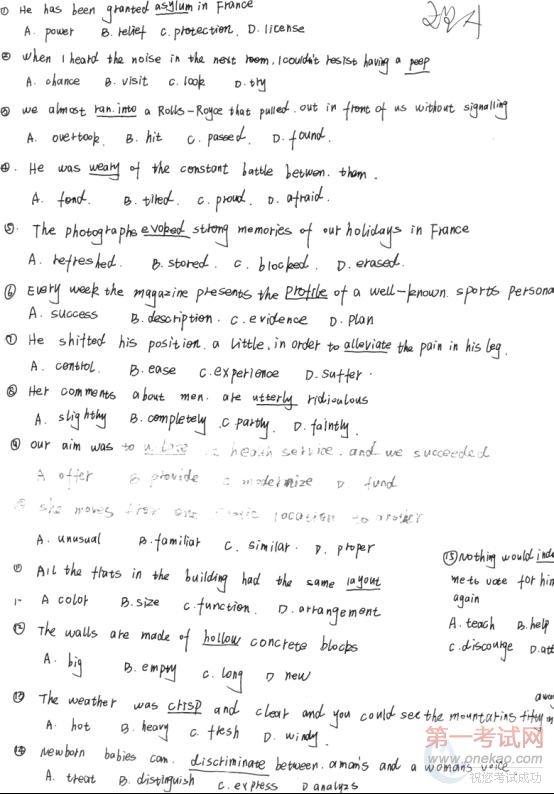 ① He has been granted asylum in France
A. power B. relief C. protection. D. license
② When I heard the noise in the next room, I couldn't resist having a peep
A. chance B. visit C. look D. try
③ we almost ran into a Rolls-Royce that pulled out in front of us without signalling
A. overtook. B. hit C. passed. D. found.
④. He was weary of the constant battle between. them.
A. fond. B. tired. C. proud. D. afraid.
⑤. The photographs evoked strong memories of our holidays in France
A. refreshed. B. stored. C. blocked. D. erased.
⑥ Every week the magazine presents the profile of a well-known sports persona
A. success B. description. C. evidence D. plan
⑦ He shifted his position a little, in order to alleviate the pain in his leg.
A. control. B. ease C. experience D. suffer.
⑧ Her comments about men are utterly ridiculous
A. slighthy B. completely. C partly. D. faintly.
⑨ our aim was to health service. and we succeeded
A offer B provide C modernize D fund
she moves from one location to another
A. unusual B. familiar C. similar. D. proper
⑪ All the flats in the building had the same layout
A color B. size C. function. D. arrangement
⑫ The walls are made of hollow concrete blocks
A. big B. empty C. long D new
⑬ The weather was crisp and clear and you could see the mountains fifty m
away
A. hot B. heavy C. fresh D. windy.
⑭ Newborn babies can discriminate between a man's and a womans voice
A. treat B. distinguish C. express D analyzs
⑮ Nothing would ind
me to vote for him
again
A. teach B. help
C. discourge D. att
第一考试网
www.onekao.com
祝您考试成功